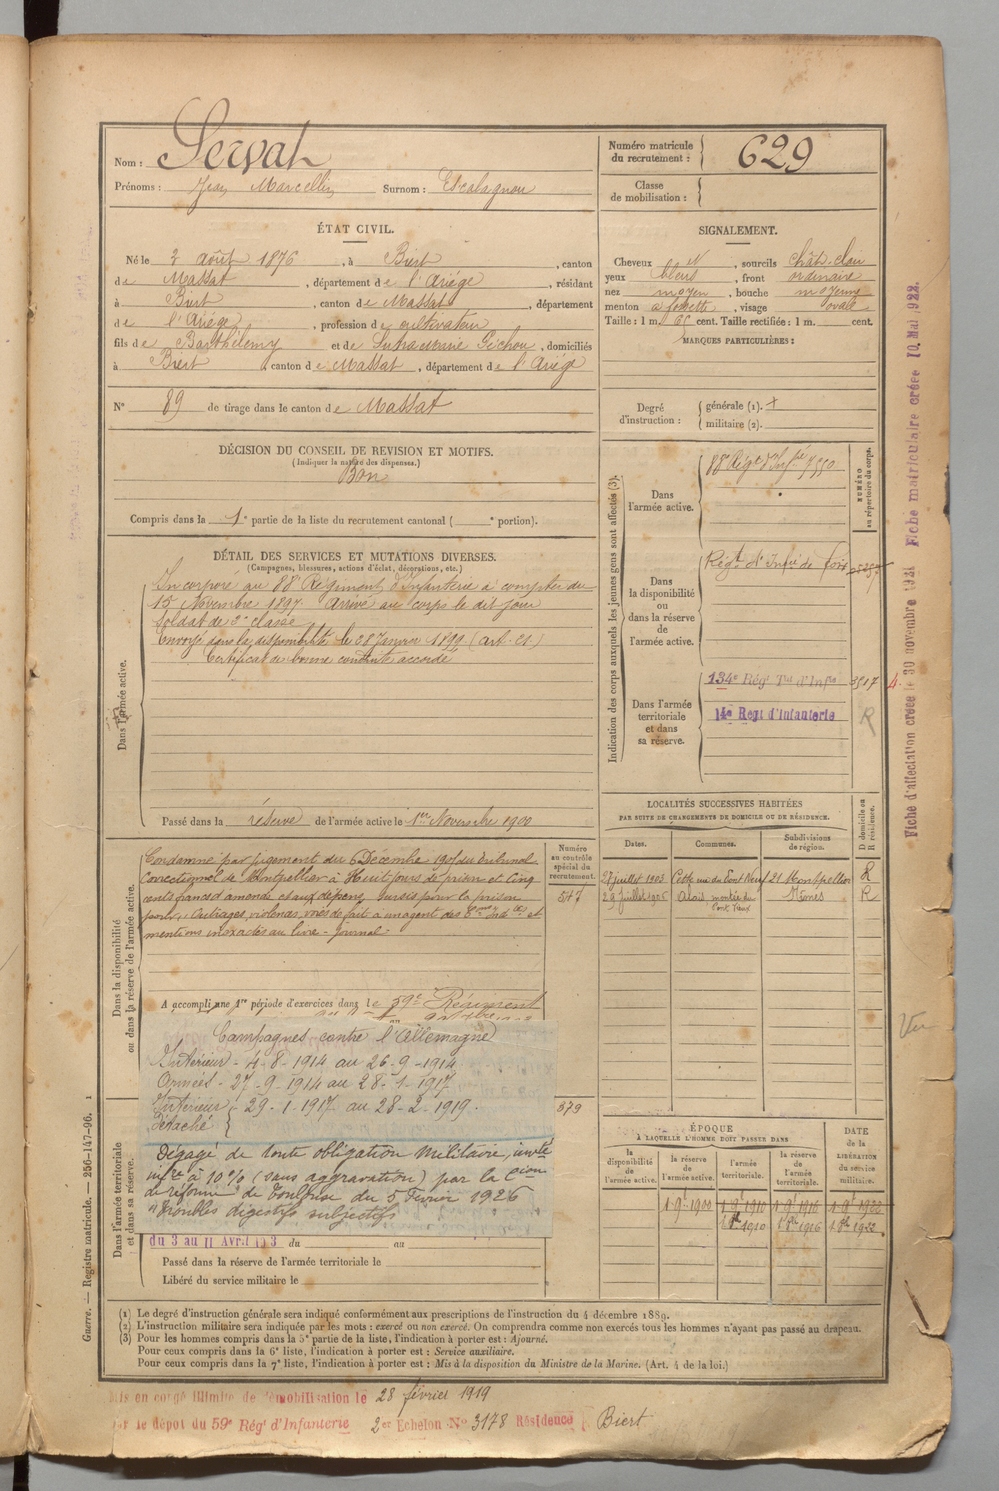 Nom : Servat
Prénoms : Jean Marcellin Surnom : Escalagnou
Numéro matricule du recrutement : 629
Classe de mobilisation :
ÉTAT CIVIL.
Né le 2 août 1876, à Biert, canton
de Massat, département de l'Ariège, résidant
à Biert, canton de Massat, département
de l'Ariège, profession de cultivateur
fils de Barthélemy et de Marie Séchou, domiciliés
à Biert canton de Massat, département de l'Ariég
N° 89 de tirage dans le canton de Massat
SIGNALEMENT.
Cheveux N, sourcils chât. clair
yeux bleus, front ordinaire
nez moyen, bouche moyenne
menton à fossette, visage ovale
Taille : 1 m. 65 cent. Taille rectifiée : 1 m. cent.
MARQUES PARTICULIÈRES :
Degré d'instruction :
générale (1). +
militaire (2).
DÉCISION DU CONSEIL DE REVISION ET MOTIFS.
(Indiquer la nature des dispenses.)
Bon
Compris dans la 1e partie de la liste du recrutement cantonal ( e portion).
DÉTAIL DES SERVICES ET MUTATIONS DIVERSES.
(Campagnes, blessures, actions d'éclat, décorations, etc.)
Dans l'armée active.
Incorporé au 88e Régiment d'Infanterie à compter du
15 Novembre 1897. Arrivé au corps le dit jour
Soldat de 2e classe
Envoyé dans la disponibilité le 28 Janvier 1899 (art. 21)
Certificat de bonne conduite accordé
Passé dans la réserve de l'armée active le 1er Novembre 1900
Indication des corps auxquels les jeunes gens sont affectés (3).
NUMÉRO au répertoire du corps.
Dans l'armée active.
88e Régt d'Infie 7550
Dans la disponibilité ou dans la réserve de l'armée active.
Régt d'Infie de Foix
Dans l'armée territoriale et dans sa réserve.
134e Régt Tal d'Infie 3517
14e Regt d'Infanterie R
LOCALITÉS SUCCESSIVES HABITÉES
PAR SUITE DE CHANGEMENTS DE DOMICILE OU DE RÉSIDENCE.
D domicile ou R résidence.
Dates. Communes. Subdivisions de région.
27 juillet 1903 Cette rue du Pont Neuf 21 Montpellier R
29 Juillet 1906 Alais montée du Pont Vieux Nîmes R
Dans la disponibilité ou dans la réserve de l'armée active.
Numéro au contrôle spécial du recrutement.
547
Condamné par jugement du 6 Décembre 1901 du tribunal
Correctionnel de Montpellier à Huit jours de prison et Cinq
cents francs d'amende et aux dépens, sursis pour la prison
pour : Outrages, violences, voies de fait à un agent des et
mentions inexactes au livre-journal.
A accompli une 1re période d'exercices dans le 59e Régiment
Campagnes contre l'Allemagne
Intérieur - 4-8-1914 au 26-9-1914
Armées - 27-9-1914 au 28-1-1917
Intérieur - 29-1-1917 au 28-2-1919.
Détaché
Dégagé de toute obligation Militaire, invté
infre à 10% (sans aggravation) par la Cion
de réforme de Toulouse du 5 Fevrier 1926
"Troubles digestifs subjectifs
Dans l'armée territoriale et dans sa réserve.
879
du 3 au 11 Avril 1913 du au
Passé dans la réserve de l'armée territoriale le
Libéré du service militaire le
ÉPOQUE
À LAQUELLE L'HOMME DOIT PASSER DANS
la disponibilité de l'armée active.
la réserve de l'armée active.
l'armée territoriale.
la réserve de l'armée territoriale.
DATE de la LIBÉRATION du service militaire.
1-9-1900 1-9-1910 1-9-1916 1-9-1922
1 8bre 1910 1 8bre 1916 1 8bre 1922
(1) Le degré d'instruction générale sera indiqué conformément aux prescriptions de l'instruction du 4 décembre 1889.
(2) L'instruction militaire sera indiquée par les mots : exercé ou non exercé. On comprendra comme non exercés tous les hommes n'ayant pas passé au drapeau.
(3) Pour les hommes compris dans la 5e partie de la liste, l'indication à porter est : Ajourné.
Pour ceux compris dans la 6e liste, l'indication à porter est : Service auxiliaire.
Pour ceux compris dans la 7e liste, l'indication à porter est : Mis à la disposition du Ministre de la Marine. (Art. 4 de la loi.)
Mis en congé illimité de démobilisation le 28 février 1919
par le dépôt du 59e Régt d'Infanterie 2er Echelon No 3178 Résidence Biert
Guerre. — Registre matricule. — 256-147-96. 1
Fiche d'affectation créée le 30 novembre 1921 Fiche matriculaire créée 10 Mai 1922.